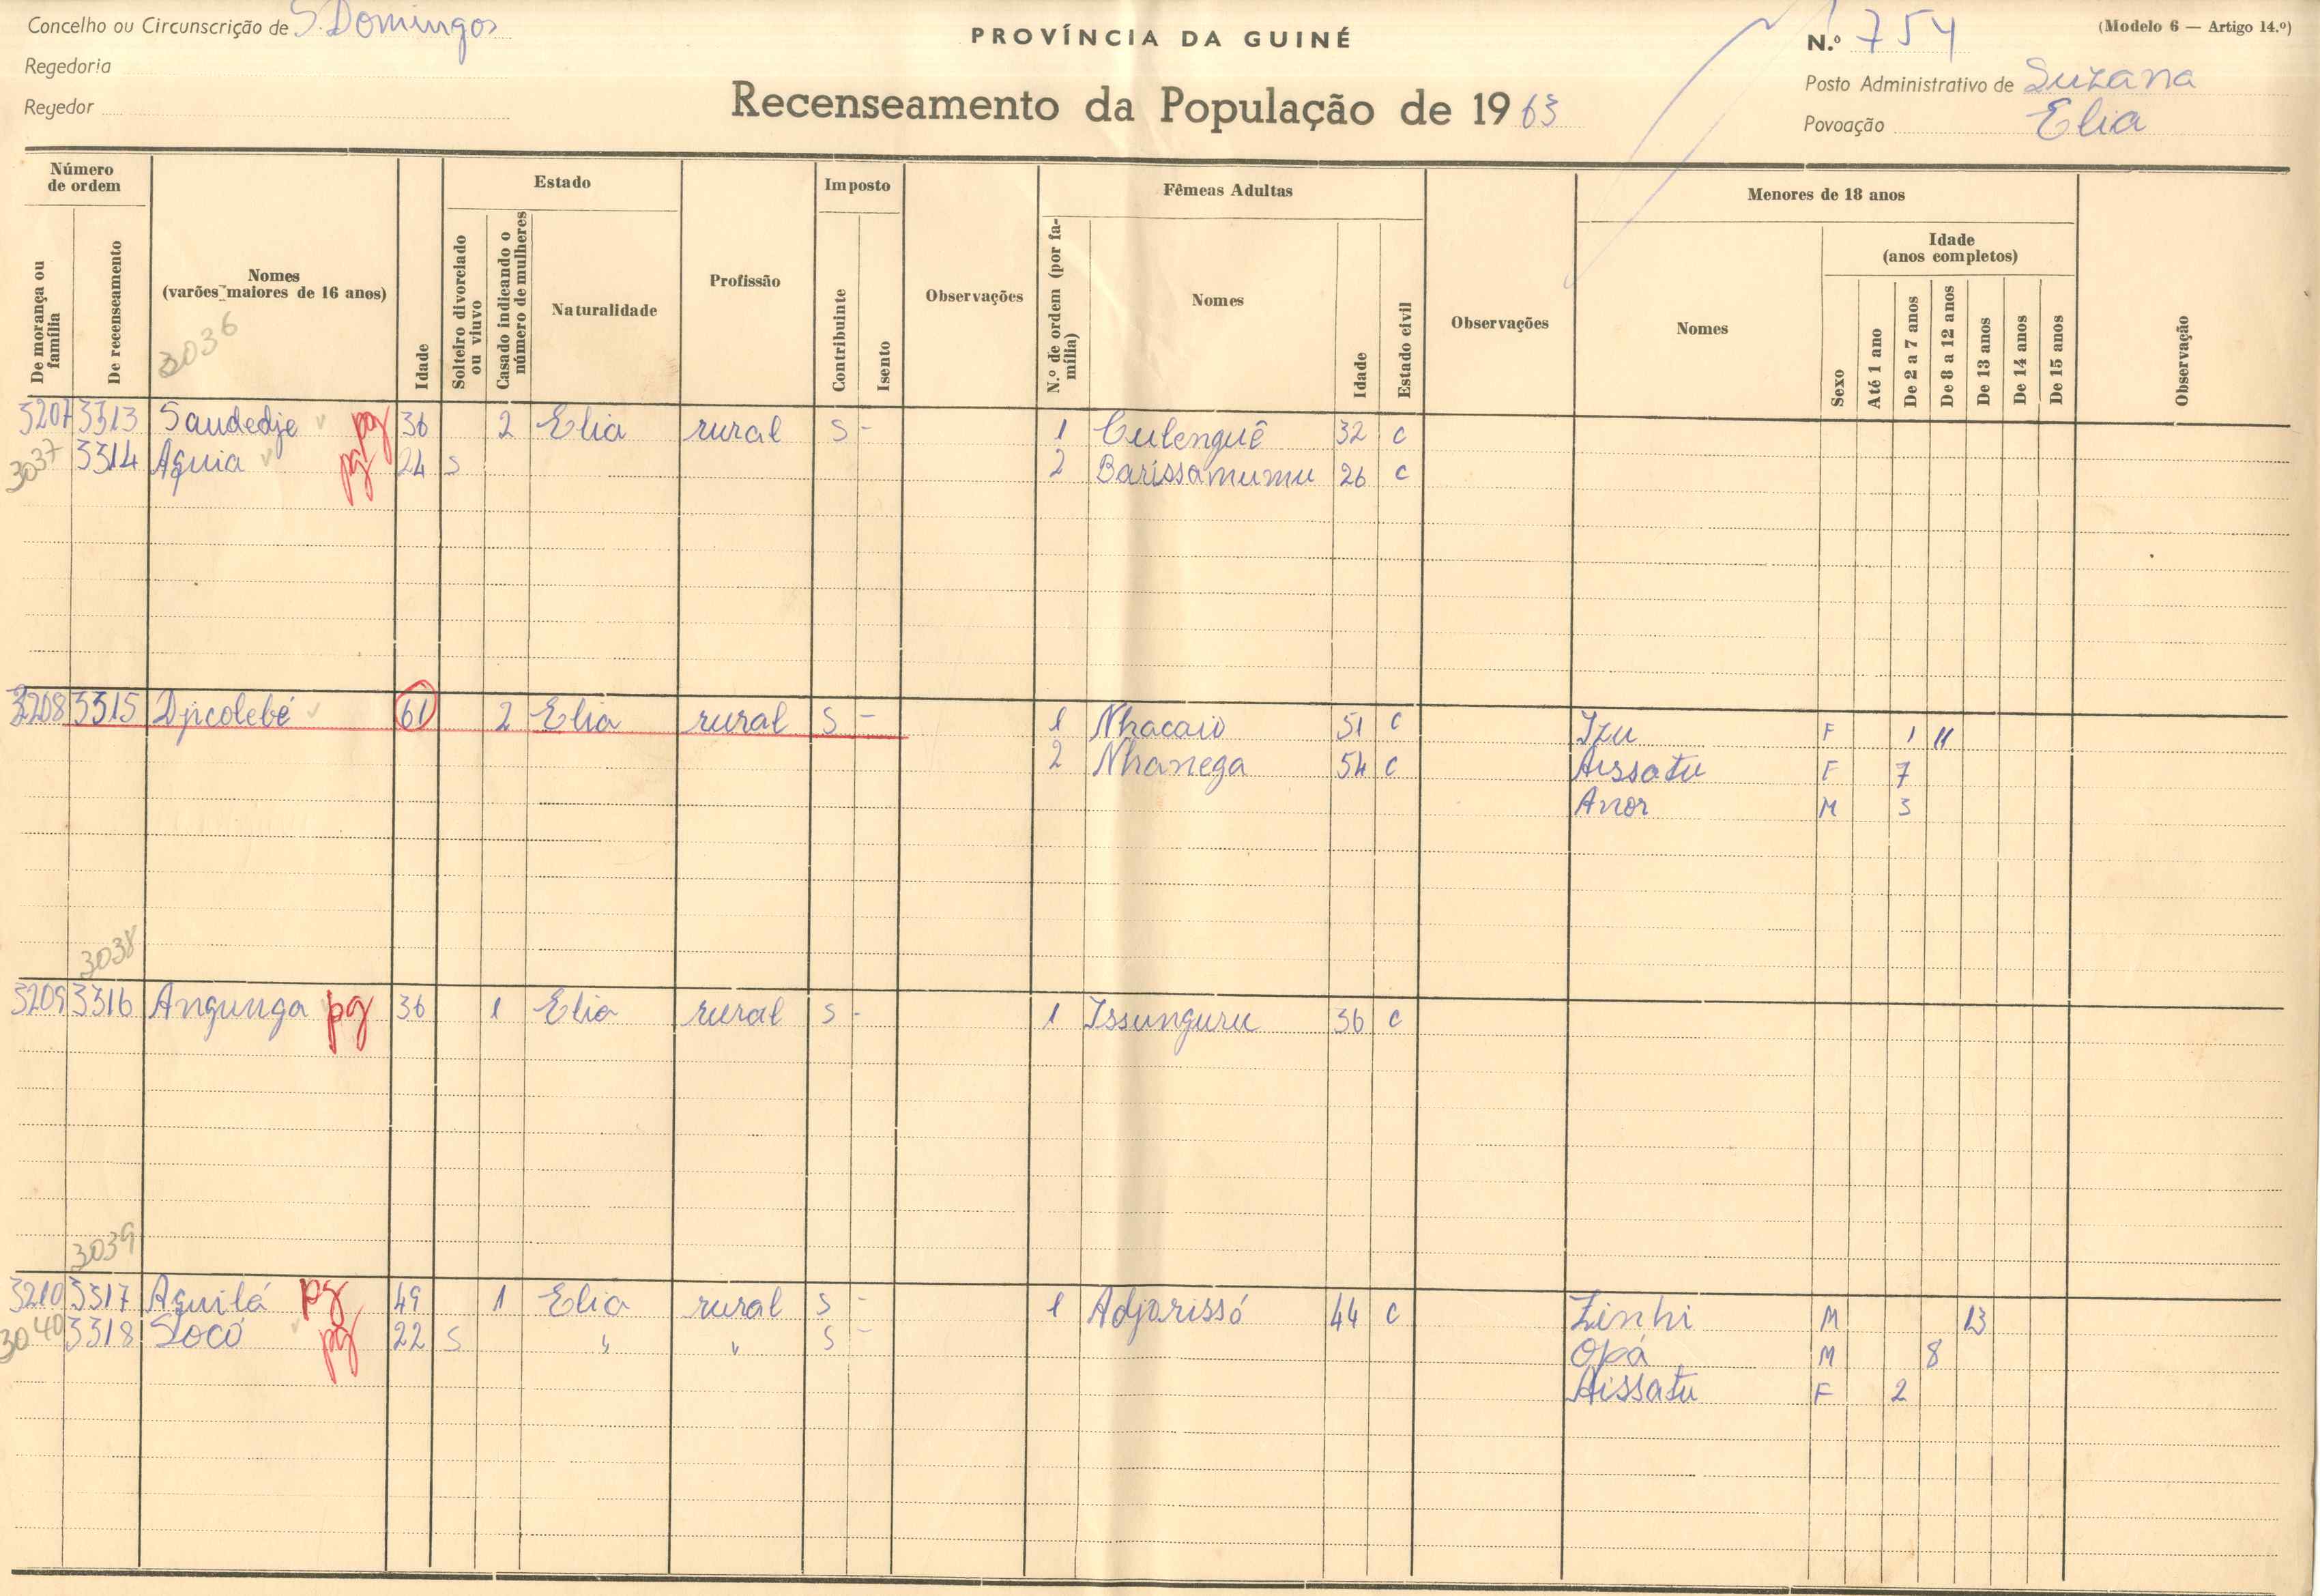 Concelho ou Circunscrição de S. Domingos
PROVÍNCIA DA GUINÉ
N.º 754
(Modelo 6 — Artigo 14.º)
Regedoria
Posto Administrativo de Suzana
Regedor
Recenseamento da População de 1963
Povoação Elia
Número de ordem
De morança ou família
De recenseamento
Nomes
(varões maiores de 16 anos)
3036
Idade
Estado
Solteiro divorciado ou viuvo
Casado indicando o número de mulheres
Naturalidade
Profissão
Imposto
Contribuinte
Isento
Observações
Fêmeas Adultas
N.º de ordem (por família)
Nomes
Idade
Estado civil
Observações
Menores de 18 anos
Nomes
Idade
(anos completos)
Sexo
Até 1 ano
De 2 a 7 anos
De 8 a 12 anos
De 13 anos
De 14 anos
De 15 anos
Observação
3207 3313 Saudedje pg 36 2 Elia rural S - 1 Culenguê 32 C
3037 3314 Aguia pg 24 S 2 Barissamumu 26 C
3208 3315 Djicolebé 61 2 Elia rural S - 1 Nhacaio 51 C Izu F 11
2 Nhanega 54 C Aissatu F 7
Anor M 3
3038
3209 3316 Angunga pg 36 1 Elia rural S - 1 Issunguru 36 C
3039
3210 3317 Aguilá pg 49 1 Elia rural S - 1 Adjarissó 44 C Zinhi M 13
3040 3318 Slocó pg 22 S " " S - Opá M 8
Aissatu F 2